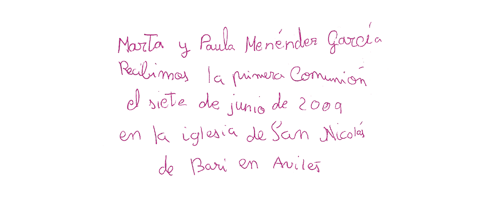 Marta y Paula Menéndez García
Recibimos la primera Comunión
el siete de junio de 2009
en la iglesia de San Nicolás
de Bari en Avilés